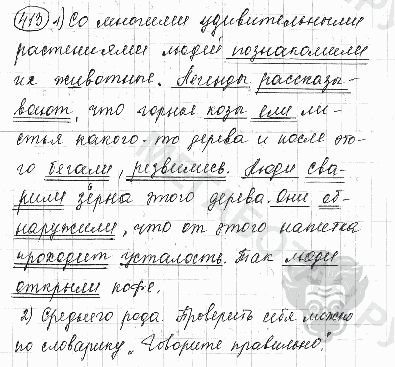 413 1) Со многими удивительными
растениями людей познакомили
их животные. Легенды рассказы-
вают, что горные козы ели ли-
стья какого-то дерева и после это-
го бегали, резвились. Люди сва-
рили зёрна этого дерева. Они об-
наружили, что от этого напитка
проходит усталость. Так люди
открыли кофе.
2) Среднего рода. Проверить себя можно
по словарику „Говорите правильно".